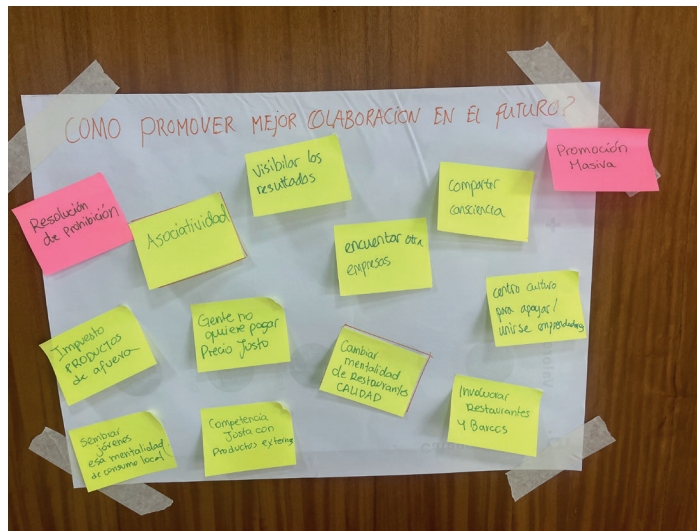 COMO PROMOVER MEJOR COLABORACION EN EL FUTURO?
Resolución
de prohibición
Asociatividad
Visibilar los
resultados
Compartir
consciencia
Promoción
Masiva
encuentar otra
empresas
centro cultivo
para apoyar/
unirse emprendedores
Impuesto
PRODUCTOS
de afuera
Gente no
quiere pagar
Precio Justo
Cambiar
mentalidad
de Restaurantes
CALIDAD
Involucrar
Restaurantes
Y Barcos
Sembrar
jóvenes
esa mentalidad
de consumo local
Competencia
Justa con
Productos externos